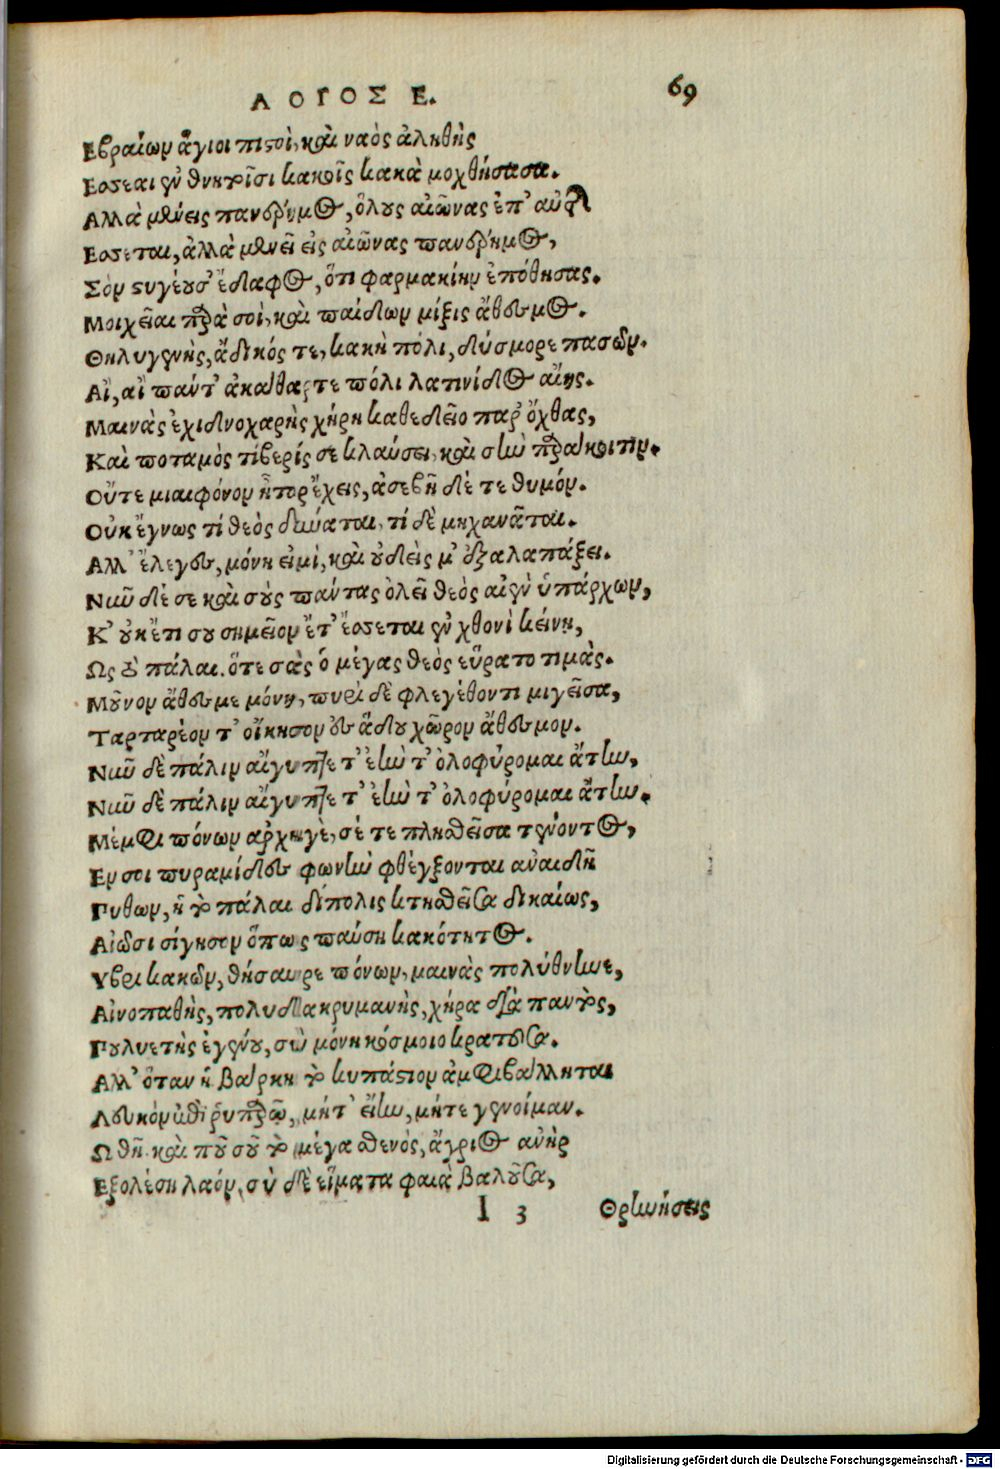 ΛΟΓΟΣ Ε. 69
Εβραίων ἅγιοι πιστοὶ, καὶ ναὸς ἀληθὴς
Εσσεαι ἐν θνητοῖσι κακοῖς κακὰ μοχθήσασα.
Αλλὰ μένεις πανέρημος, ὅλους αἰῶνας ἐπ' αὖθις
Εσσεται, ἀλλὰ μενεῖ εἰς αἰῶνας πανέρημος,
Σὸν στυγέουσ' ἔδαφος, ὅτι φαρμακίην ἐπόθησας.
Μοιχεῖαι παρὰ σοὶ, καὶ παίδων μίξις ἄθεσμος.
Θηλυγενὴς, ἄδικός τε, κακὴ πόλι, δύσμορε πασῶν.
Αἲ, αἲ πάντ' ἀκάθαρτε πόλι λατινίδος αἴης.
Μαινὰς ἐχιδνοχαρὴς χήρη καθεδεῖο παρ' ὄχθας,
Καὶ ποταμὸς τίβερίς σε κλαύσει, καὶ σὴν παράκοιτιν.
Οὔτε μιαιφόνον ἦτορ ἔχεις, ἀσεβῆ δέ τε θυμόν.
Οὐκ ἔγνως τί θεὸς δύναται, τί δὲ μηχανᾶται.
Αλλ' ἔλεγες, μόνη εἰμὶ, καὶ οὐδείς μ' ἐξαλαπάξει.
Νῦν δέ σε καὶ σοὺς πάντας ὀλεῖ θεὸς αἰὲν ὑπάρχων,
Κ' οὐκέτι σου σημεῖον ἔτ' ἔσσεται ἐν χθονὶ κείνῃ,
Ως τὸ πάλαι. ὅτε σὰς ὁ μέγας θεὸς εὕρατο τιμάς.
Μοῦνον ἄθεσμε μόνη, πυρὶ δὲ φλεγέθοντι μιγεῖσα,
Ταρτάρεον τ' οἴκησον ἐς ἅδου χῶρον ἄθεσμον.
Νῦν δὲ πάλιν αἴγυπτε τ' ἐὴν τ' ὀλοφύρομαι ἄτην,
Νῦν δὲ πάλιν αἴγυπτε τ' ἐὴν τ' ὀλοφύρομαι ἄτην.
Μέμφι πόνων αρχηγὲ, σέ τε πληθεῖσα τένοντος,
Εν σοι πυραμίδες φωνὴν φθέγξονται αναιδῆ
Πυθων, ἡ τὸ πάλαι δίπολις κτηθεῖσα δικαίως,
Αἰῶσι σίγησον ὅπως παύσῃ κακότητος.
Υβρι κακῶν, θήσαυρε πόνων, μαινὰς πολύθρηνε,
Αἰνοπαθὴς, πολυδακρυμανὴς, χήρα διὰ παντὸς,
Πουλυετὴς ἐγένου, σὺ μόνη κόσμοιο κρατοῦσα.
Αλλ' ὅταν ἡ Βάρκη τὸ κυπάσσιον ἀμφιβάλληται
Λευκὸν ἐπὶ ῥυπαρῷ, μήτ' εἴην, μήτε γενοίμαν.
Ω θῆ καὶ ποῦ σοῦ τὸ μέγα σθενὸς, ἄγριος ανὴρ
Εξολέσῃ λαόν, σὺ δὲ εἵματα φαιὰ βαλοῦσα,
I 3 Θρηνήσεις
Digitalisierung gefördert durch die Deutsche Forschungsgemeinschaft - DFG